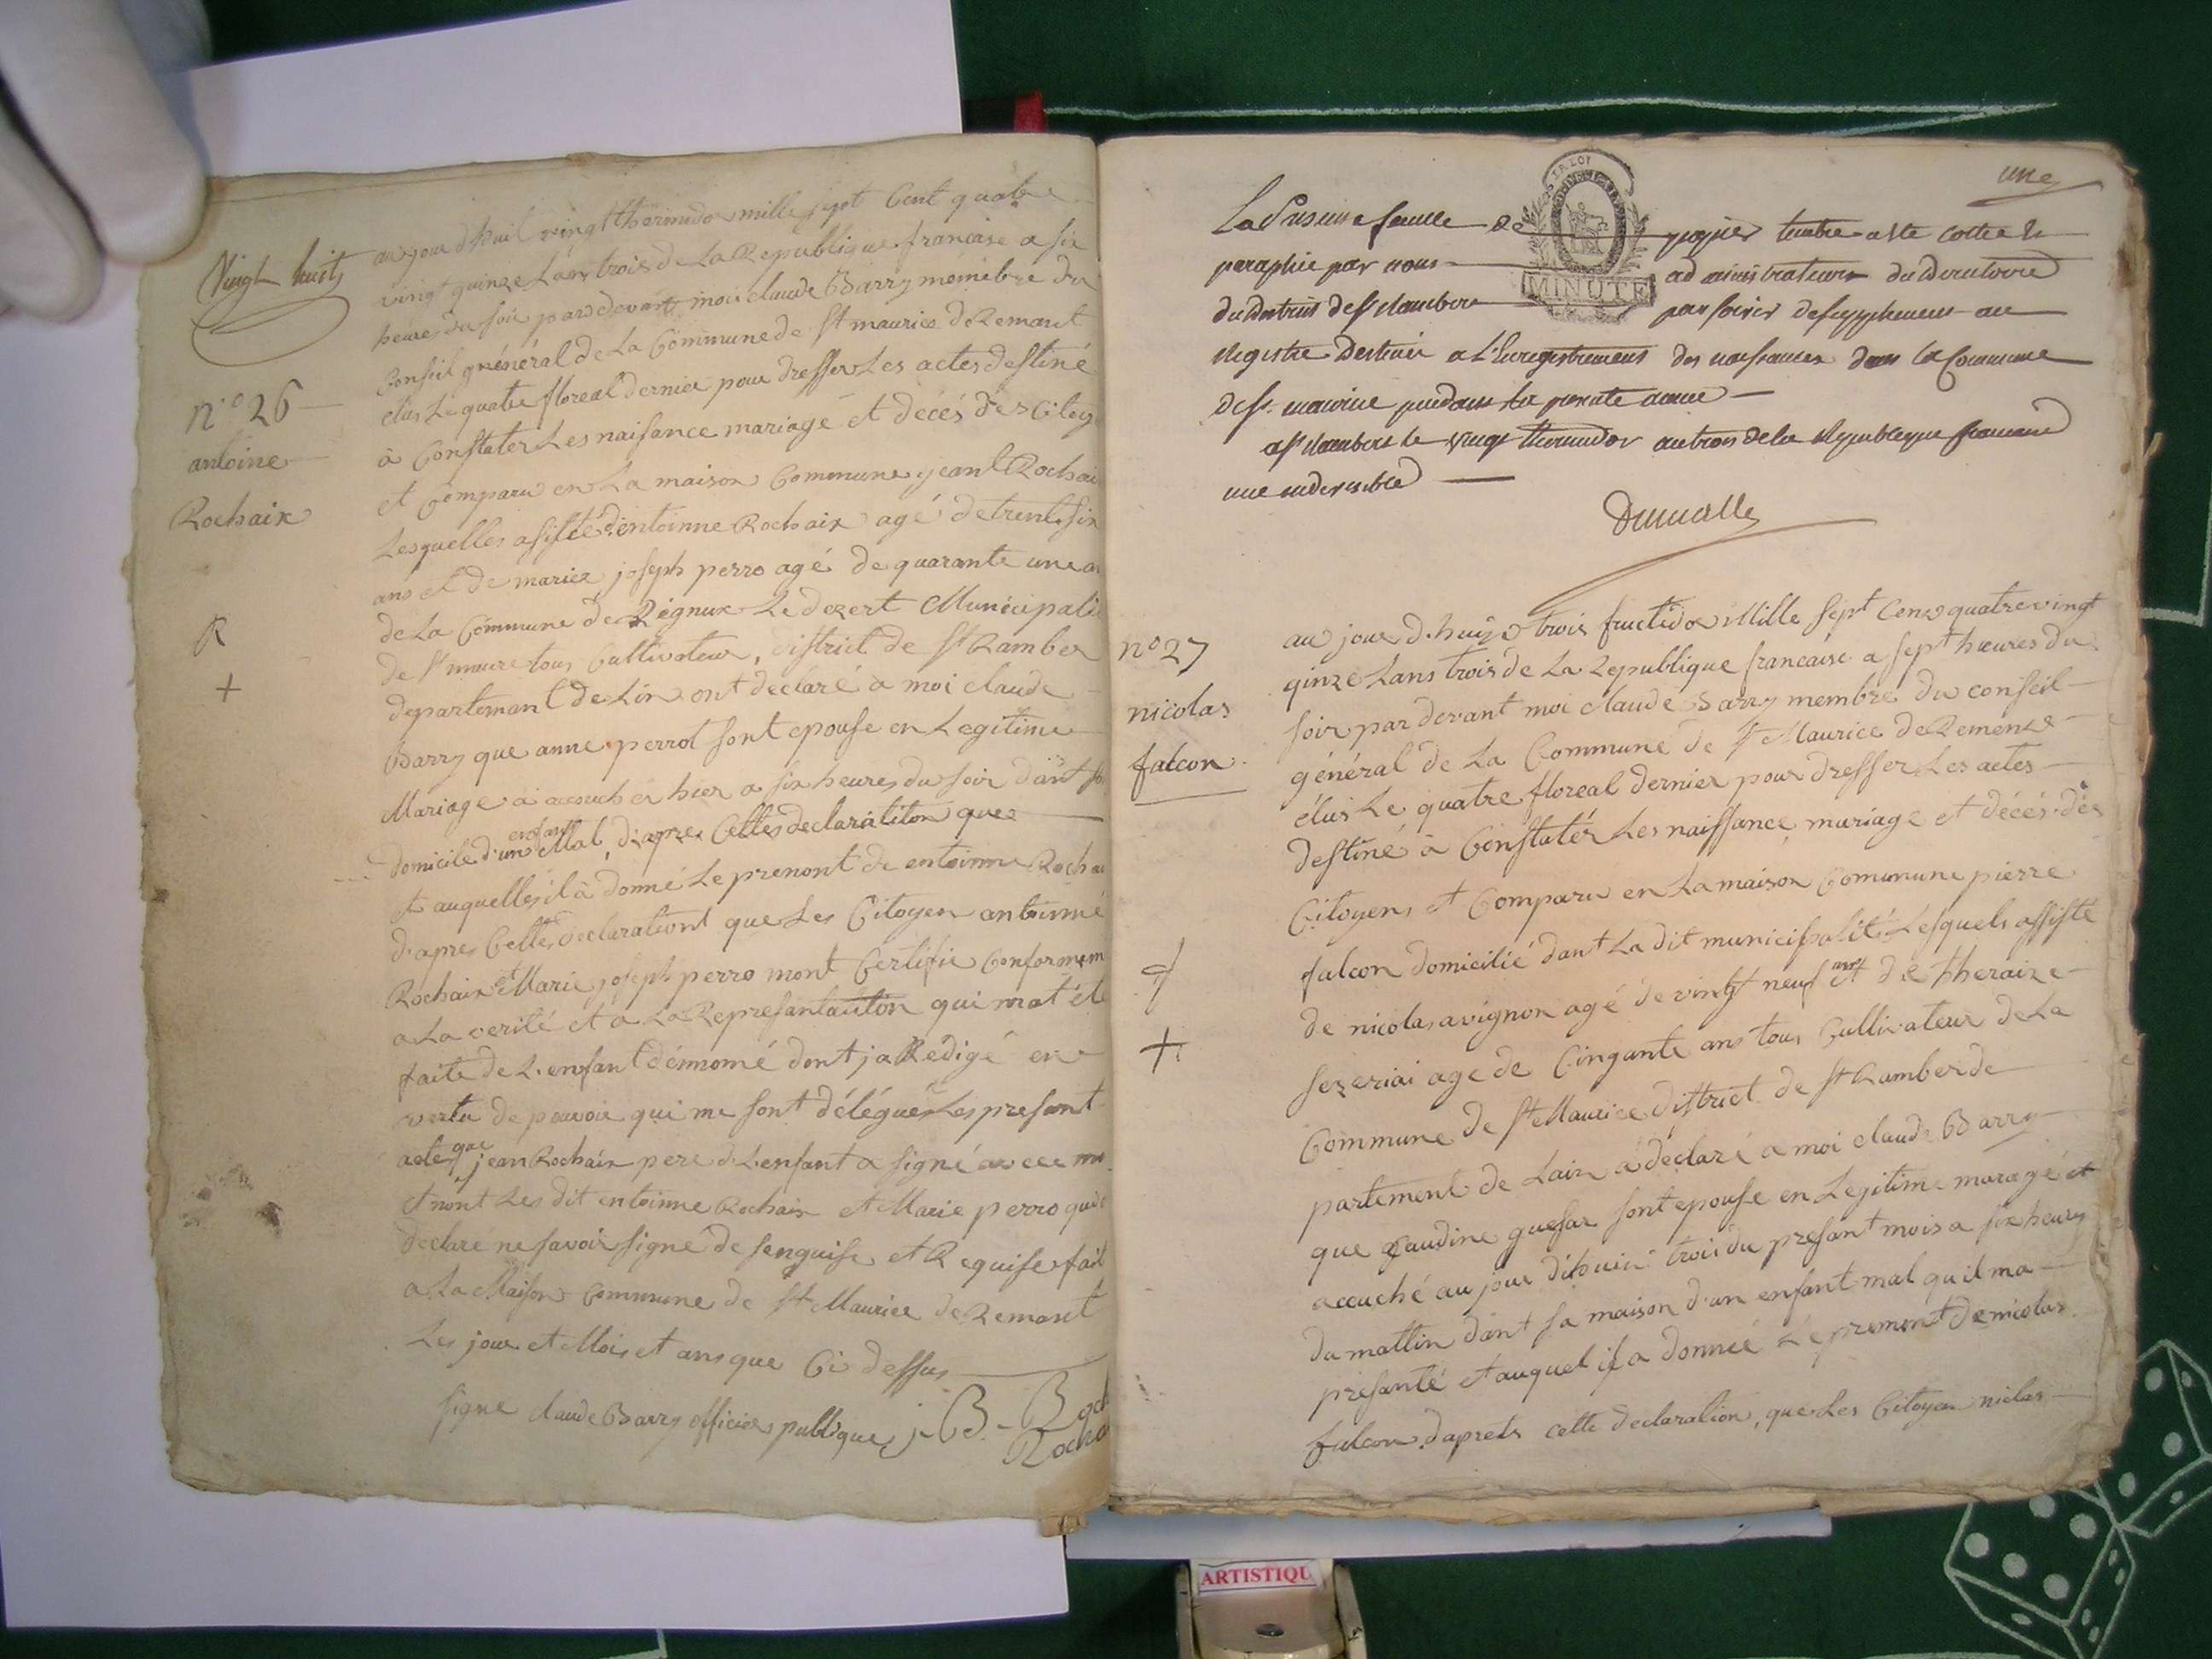 Vingt huit
n.º 26
antoine
Rochaix
R
+
au jour d'huil vingt thermidor mille sept Cent quatre
vingt quinze Lans trois de La Republique francaise a six
heures du soir pardevant moi claude Barry momebre du
Conseil général de La Commune de St maurice de Remant
élus Le quatre floreal dernier pour dresser Les actes destiné
à Constater Les naisance mariage et décés des Citoy
et Comparu en La maison Commune jeant Rochai
Lesquelles asisté d'entoinne Rochaix agé de trente six
ans et de mariee joseph perro agé de quarante une a
de La Commune de Rignux Le dezert Municipali
de St maure tous Cultivateur, district de St Ramber
departemant de Lin ont déclaré à moi claude
Barry que anne perrot sont epouse en Legitime
Mariage à acoucher hier a six heures du soir dant so
enfant
domicile d'un Mal, d'apres Celles declaratiton que
et auquelles il à donné Le prenont de entoinne Rocha
d'apres Celles declarationt que Les Citoyen antoinne
Rochaix et Marie joseph perro mont Certifie Conformem
a La verité et a La Represantaution qui m'at été
faite de L'enfant dénnomé dont ja Redigé en
vertu de pouvoir qui me sont délégués Les presant
acte que jean Rochaix pere de L'enfant a signé avece mo
et nont Les dit entoinne Rochaix et Marie perro qui
declaré ne savoir signé de senquise et Requise fait
a La Maison Commune de St Maurice de Remant
Les jour et Mois et ans que Ci dessus
signe claude Barry officier publique j-B-Roch
Rocha
une
S LA LOI
MINUTE
La Presente feuille de papier timbré a été cottée et
paraphée par nous administrateur du Directoire
du District de St Rambert pour servir de supplement au
Registre Destiné a L'Enregistrement des naissances dans la Commune
de St. maurice pendant la presente année
a St Rambert le vingt thermidor an trois de la Republique francaise
une indivisible
n.º 27
nicolas
falcon
+
au jour d.huije trois fructidor Mille sept Cens quatrevingt
qinze Lans trois de La Republique francaise a sept heures du
soir par devant moi claude Barry membre du conseil
général de La Commune de St Maurice de Remens
élus Le quatre floreal dernier pour dresser Les actes
destiné à Constatér Les naissance mariage et décés dés
Citoyens et Comparu en La maison Commune pierre
falcon domicilié dant La dit municipalité Lesquels assisté
de nicolas avignon agé de vingt neuf ans et de theraize
sezeriai age de Cinqante ans tous Cultivateur de La
Commune de St Maurice district de St Ramber de
partement de Lain à déclaré a moi claude Barry
que Claudine guesar sont epouse en Legitime marage et
acouché au jour dithuiei trois du presant mois a six heures
du mattin dant sa maison d'un enfant mal qu il ma
présanté et auquel il a donnée Le prenont de nicolas
falcon d'aprets cette declaration, que Les Citoyen niclas